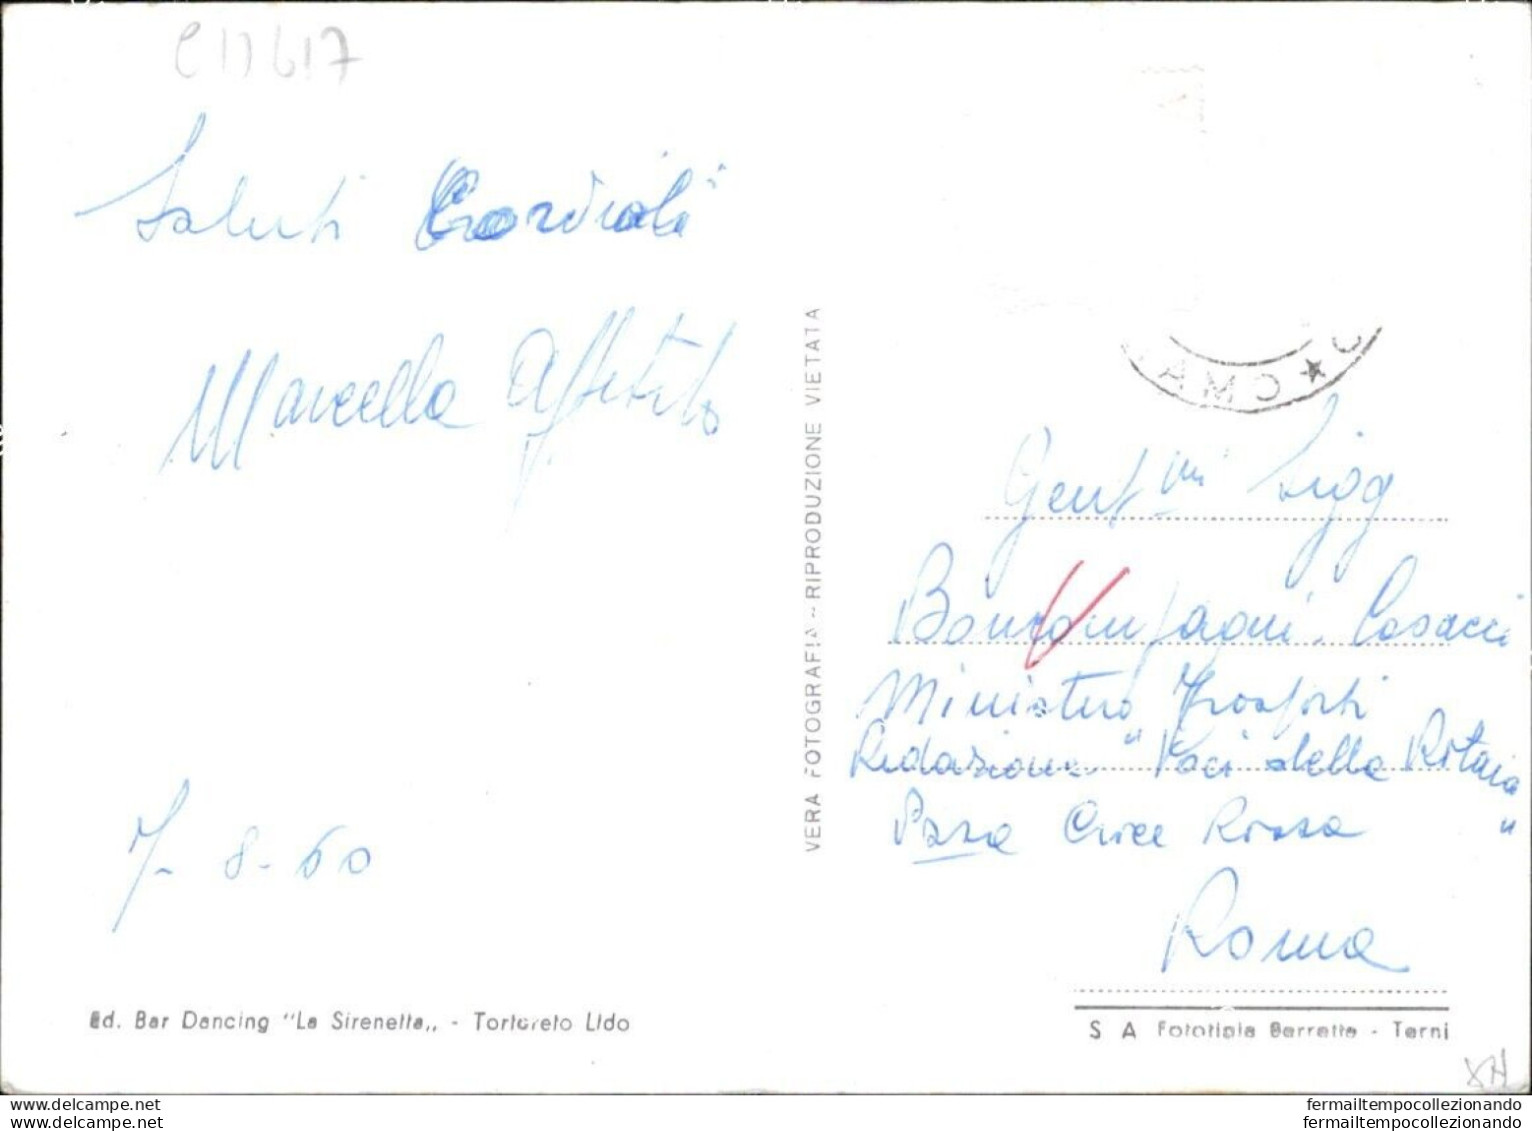 Saluti Cordiali
Marcella
7-8-60
Ed. Bar Dancing "La Sirenetta„ - Tortoreto Lido
VERA FOTOGRAFIA - RIPRODUZIONE VIETATA
Gent.mi Sigg
Boncompagni. Casacci
Ministero Trasporti
Redazione "Voci della Rotaia"
P.zza Croce Rossa
Roma
S A Fototipia Barretta - Terni
www.delcampe.net
fermailtempocollezionando
fermailtempocollezionando